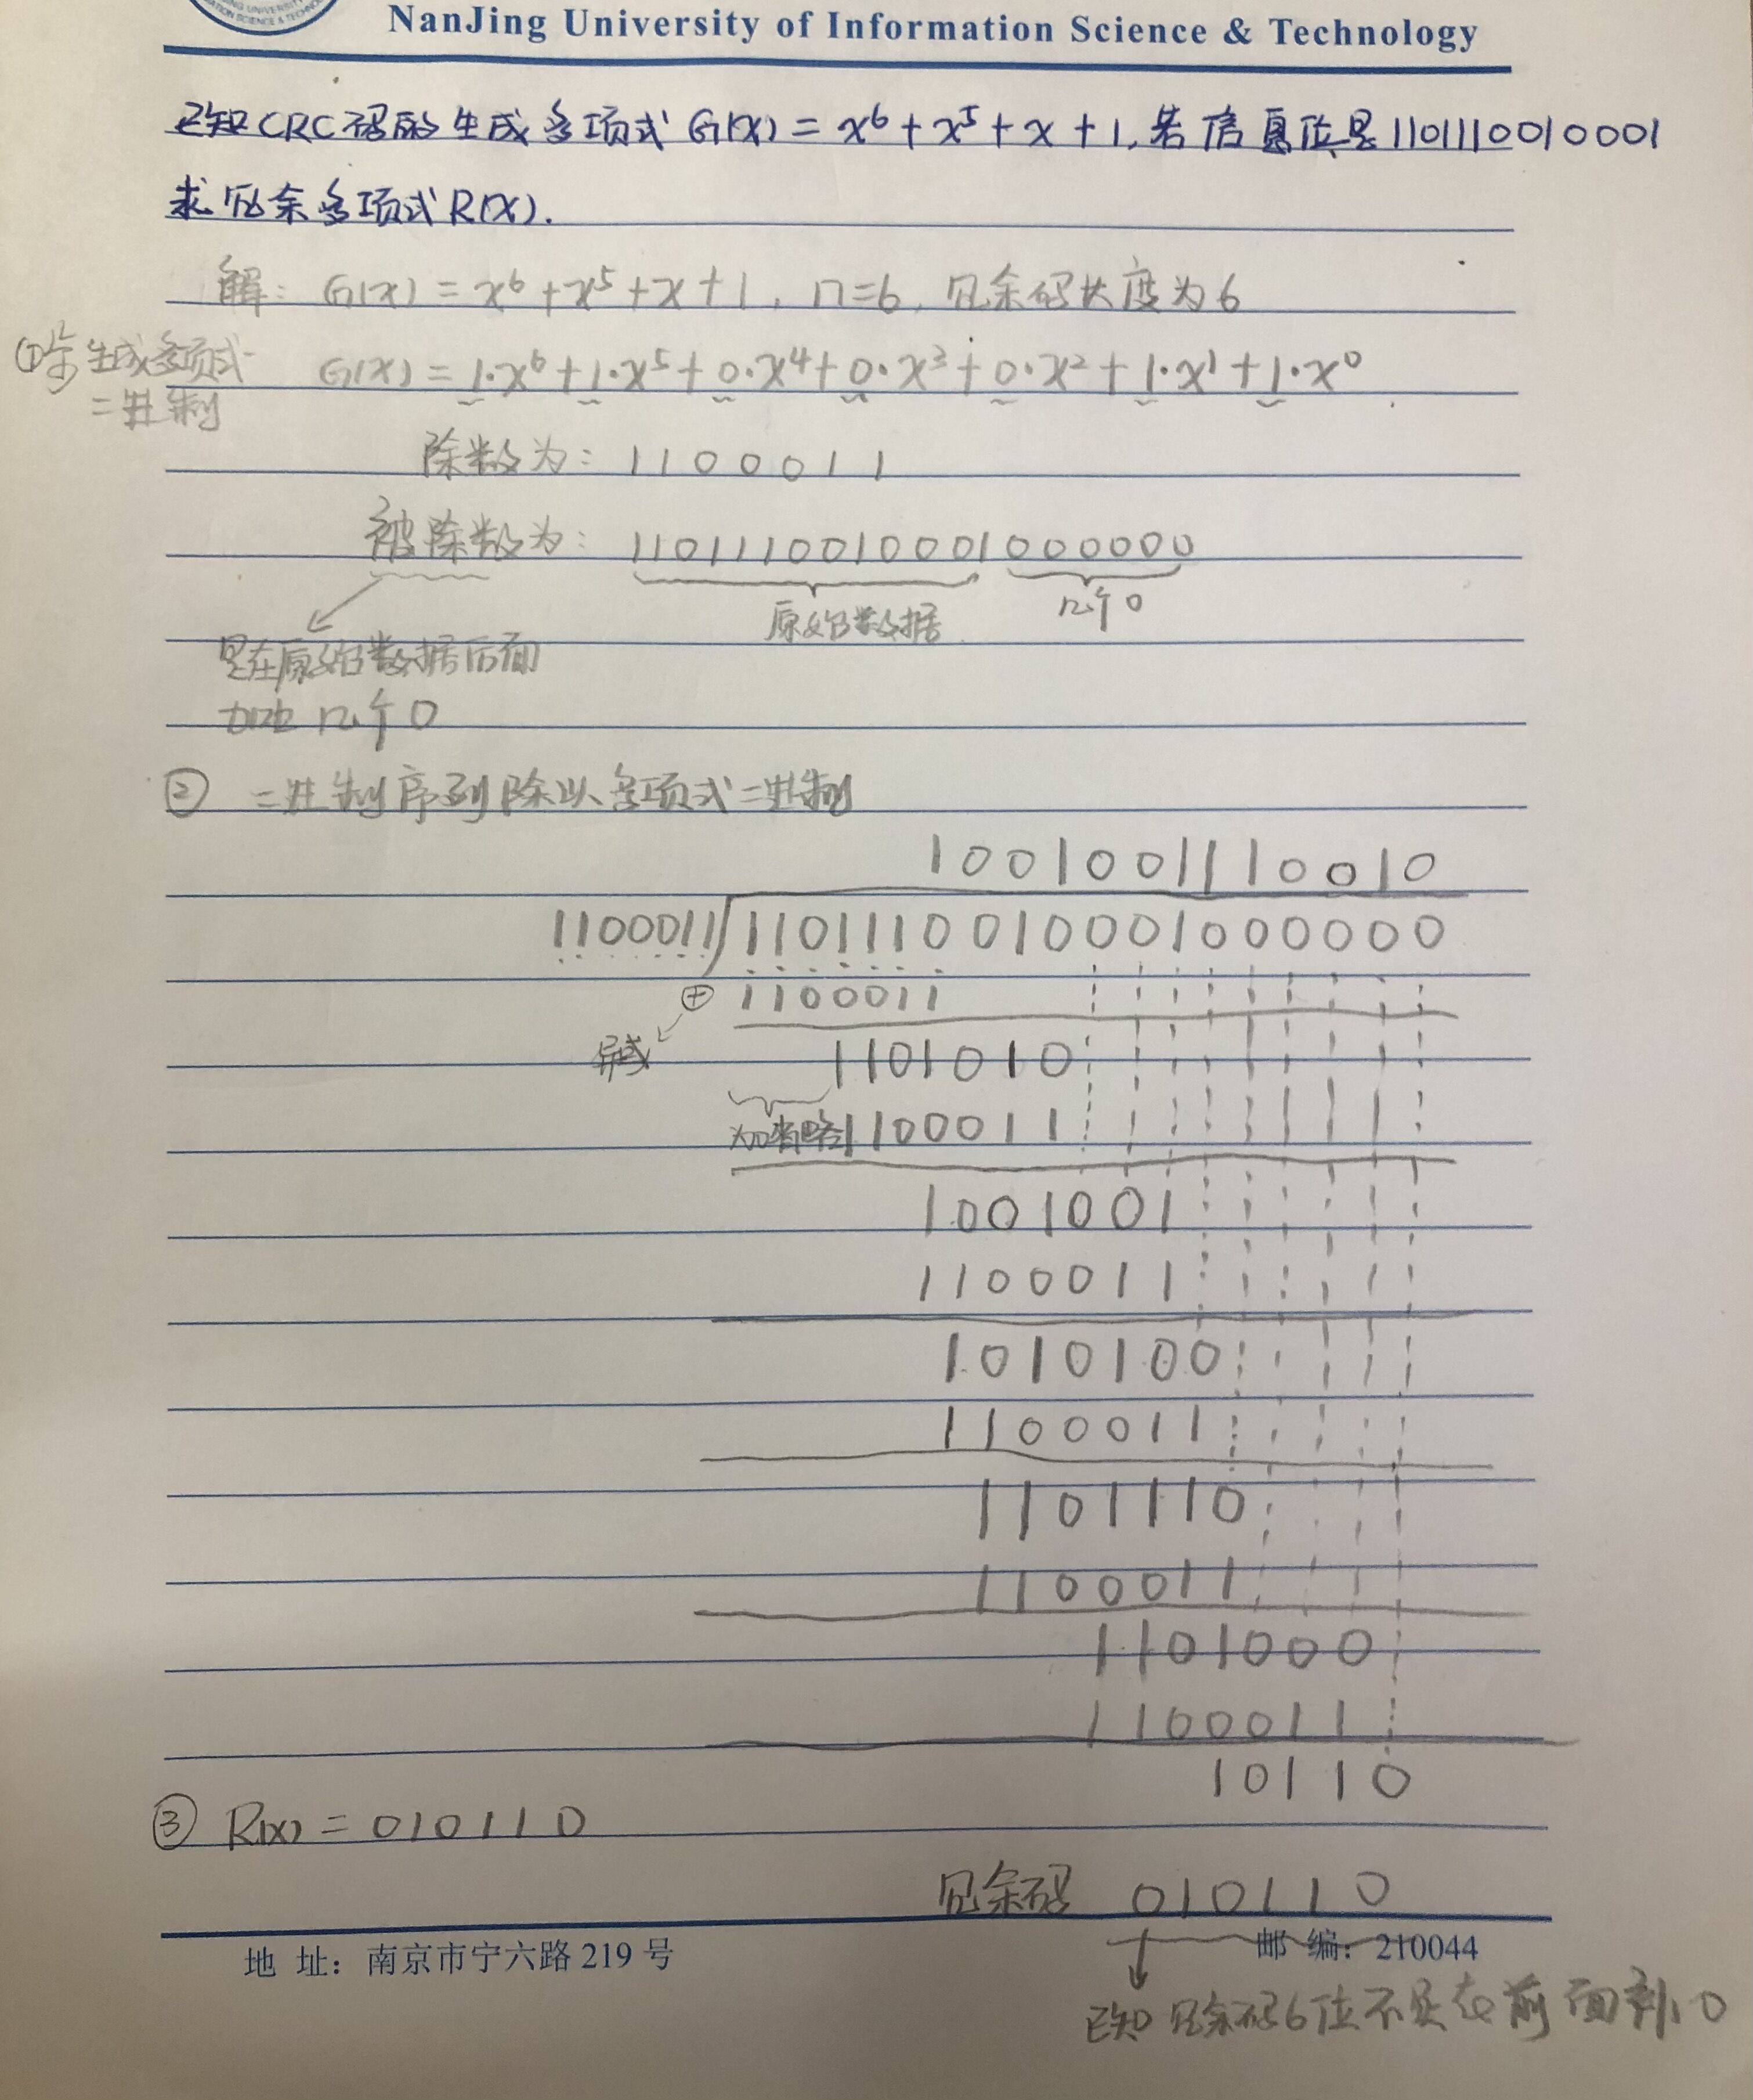 NanJing University of Information Science & Technology
已知CRC码的生成多项式 G(x) = x⁶ + x⁵ + x + 1, 若信息位是1101110010001
求冗余多项式R(x).
解: G(x) = x⁶ + x⁵ + x + 1, n=6, 冗余码长度为6
① 生成多项式
二进制
G(x) = 1·x⁶ + 1·x⁵ + 0·x⁴ + 0·x³ + 0·x² + 1·x¹ + 1·x⁰
除数为: 1100011
被除数为: 1101110010001000000
原始数据 n个0
是在原始数据后面
加 n个0
② 二进制序列除以多项式二进制
1001001110010
1100011 1101110010001000000
⊕ 1100011
异或 1101010
为0省略 1100011
1001001
1100011
1010100
1100011
1101110
1100011
1101000
1100011
10110
③ R(x) = 010110
冗余码 010110
地 址: 南京市宁六路 219 号 邮 编: 210044
已知冗余码6位不足在前面补0